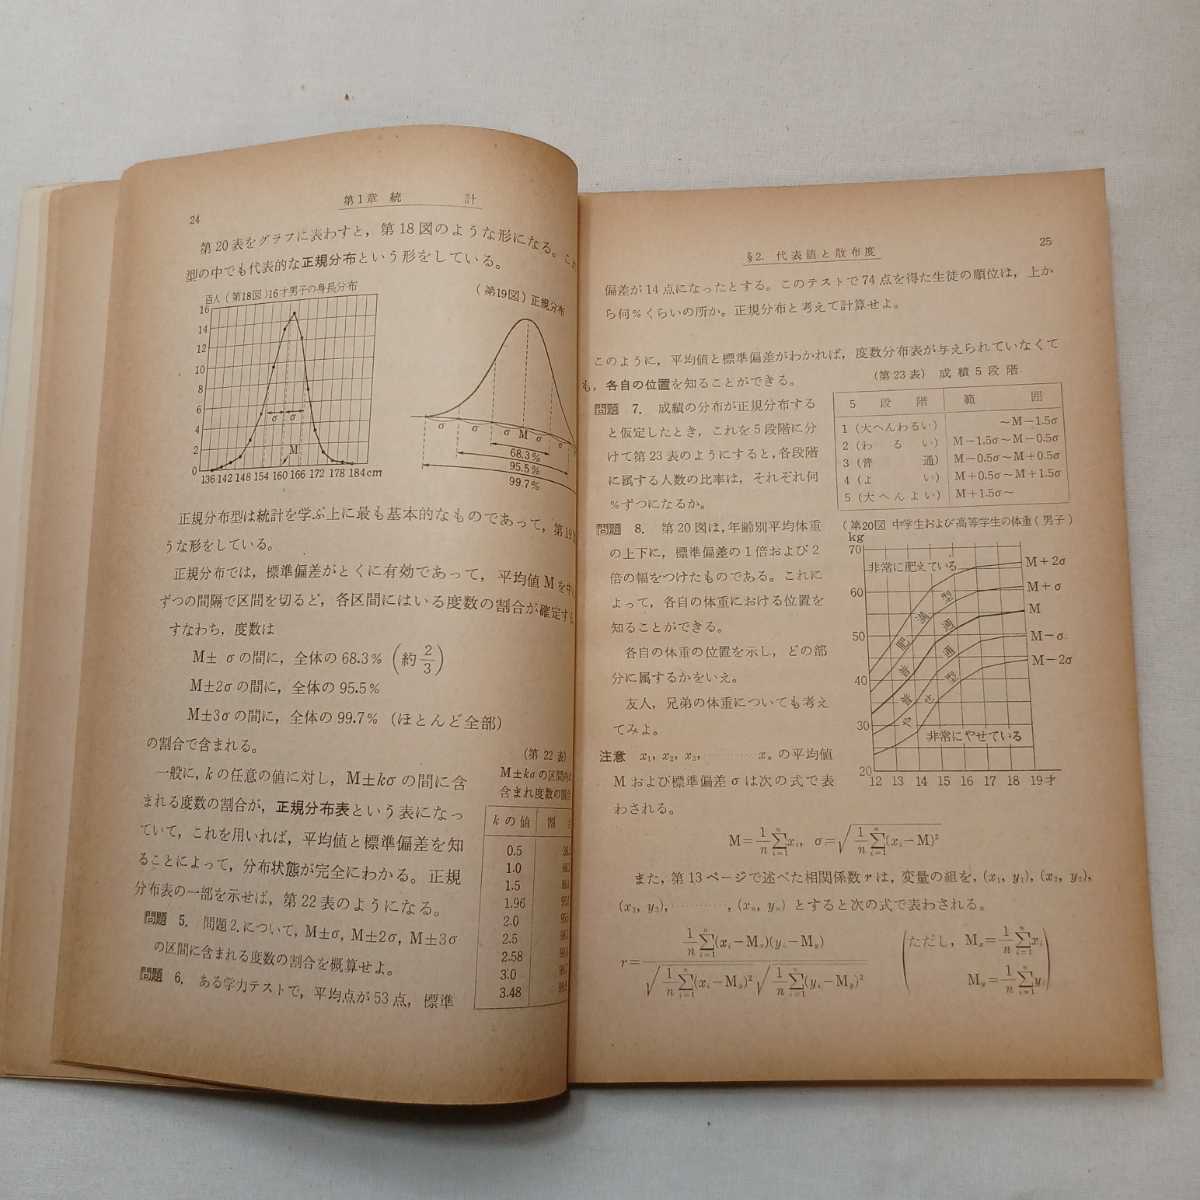 24
第1章 統 計
第20表をグラフに表わすと，第18図のような形になる。これ
型の中でも代表的な正規分布という形をしている。
百人 (第18図) 16才男子の身長分布
16
14
12
10
8
6
4
2
0
σ σ
M
136 142 148 154 160 166 172 178 184cm
(第19図) 正規分布
σ σ σ M σ σ
68.3%
95.5%
99.7%
正規分布型は統計を学ぶ上に最も基本的なものであって，第19
うな形をしている。
正規分布では，標準偏差がとくに有効であって，平均値Mを中
ずつの間隔で区間を切ると，各区間にはいる度数の割合が確定する
すなわち，度数は
M± σの間に，全体の68.3% (約2/3)
M±2σの間に，全体の95.5%
M±3σの間に，全体の99.7% (ほとんど全部)
の割合で含まれる。
一般に，kの任意の値に対し，M±kσの間に含
まれる度数の割合が，正規分布表という表になっ
ていて，これを用いれば，平均値と標準偏差を知
ることによって，分布状態が完全にわかる。正規
分布表の一部を示せば，第22表のようになる。
(第22表)
M±kσの区間内に
含まれ度数の割合
kの値 割
0.5
1.0
1.5
1.96
2.0
2.5
2.58
3.0
3.48
問題 5. 問題2.について，M±σ，M±2σ，M±3σ
の区間に含まれる度数の割合を概算せよ。
問題 6. ある学力テストで，平均点が53点，標準
§2. 代表値と散布度
25
偏差が14点になったとする。このテストで74点を得た生徒の順位は，上か
ら何%くらいの所か。正規分布と考えて計算せよ。
このように，平均値と標準偏差がわかれば，度数分布表が与えられていなくて
も，各自の位置を知ることができる。
問題 7. 成績の分布が正規分布する
と仮定したとき，これを5段階に分
けて第23表のようにすると，各段階
に属する人数の比率は，それぞれ何
%ずつになるか。
(第23表) 成績5段階
5 段 階 範 囲
1 (大へんわるい) 〜M−1.5σ
2 (わ る い) M−1.5σ〜M−0.5σ
3 (普 通) M−0.5σ〜M+0.5σ
4 (よ い) M+0.5σ〜M+1.5σ
5 (大へんよい) M+1.5σ〜
問題 8. 第20図は，年齢別平均体重
の上下に，標準偏差の1倍および2
倍の幅をつけたものである。これに
よって，各自の体重における位置を
知ることができる。
各自の体重の位置を示し，どの部
分に属するかをいえ。
友人，兄弟の体重についても考え
てみよ。
(第20図 中学生および高等学生の体重(男子)
kg
70
60
50
40
30
20
非常に肥えている
肥満型
普通
普通
やせ型
非常にやせている
M+2σ
M+σ
M
M−σ
M−2σ
12 13 14 15 16 17 18 19才
注意 x₁, x₂, x₃, ………… xₙの平均値
Mおよび標準偏差σは次の式で表
わされる。
M=1/n Σ(i=1→n) xᵢ, σ=√(1/n Σ(i=1→n)(xᵢ−M)²)
また，第13ページで述べた相関係数rは，変量の組を，(x₁, y₁), (x₂, y₂),
(x₃, y₃), …………, (xₙ, yₙ) とすると次の式で表わされる。
r= 1/n Σ(i=1→n)(xᵢ−Mₓ)(yᵢ−Mᵧ) / √(1/n Σ(i=1→n)(xᵢ−Mₓ)²) √(1/n Σ(i=1→n)(yᵢ−Mᵧ)²)
(ただし，Mₓ=1/n Σ(i=1→n) xᵢ
Mᵧ=1/n Σ(i=1→n) yᵢ)